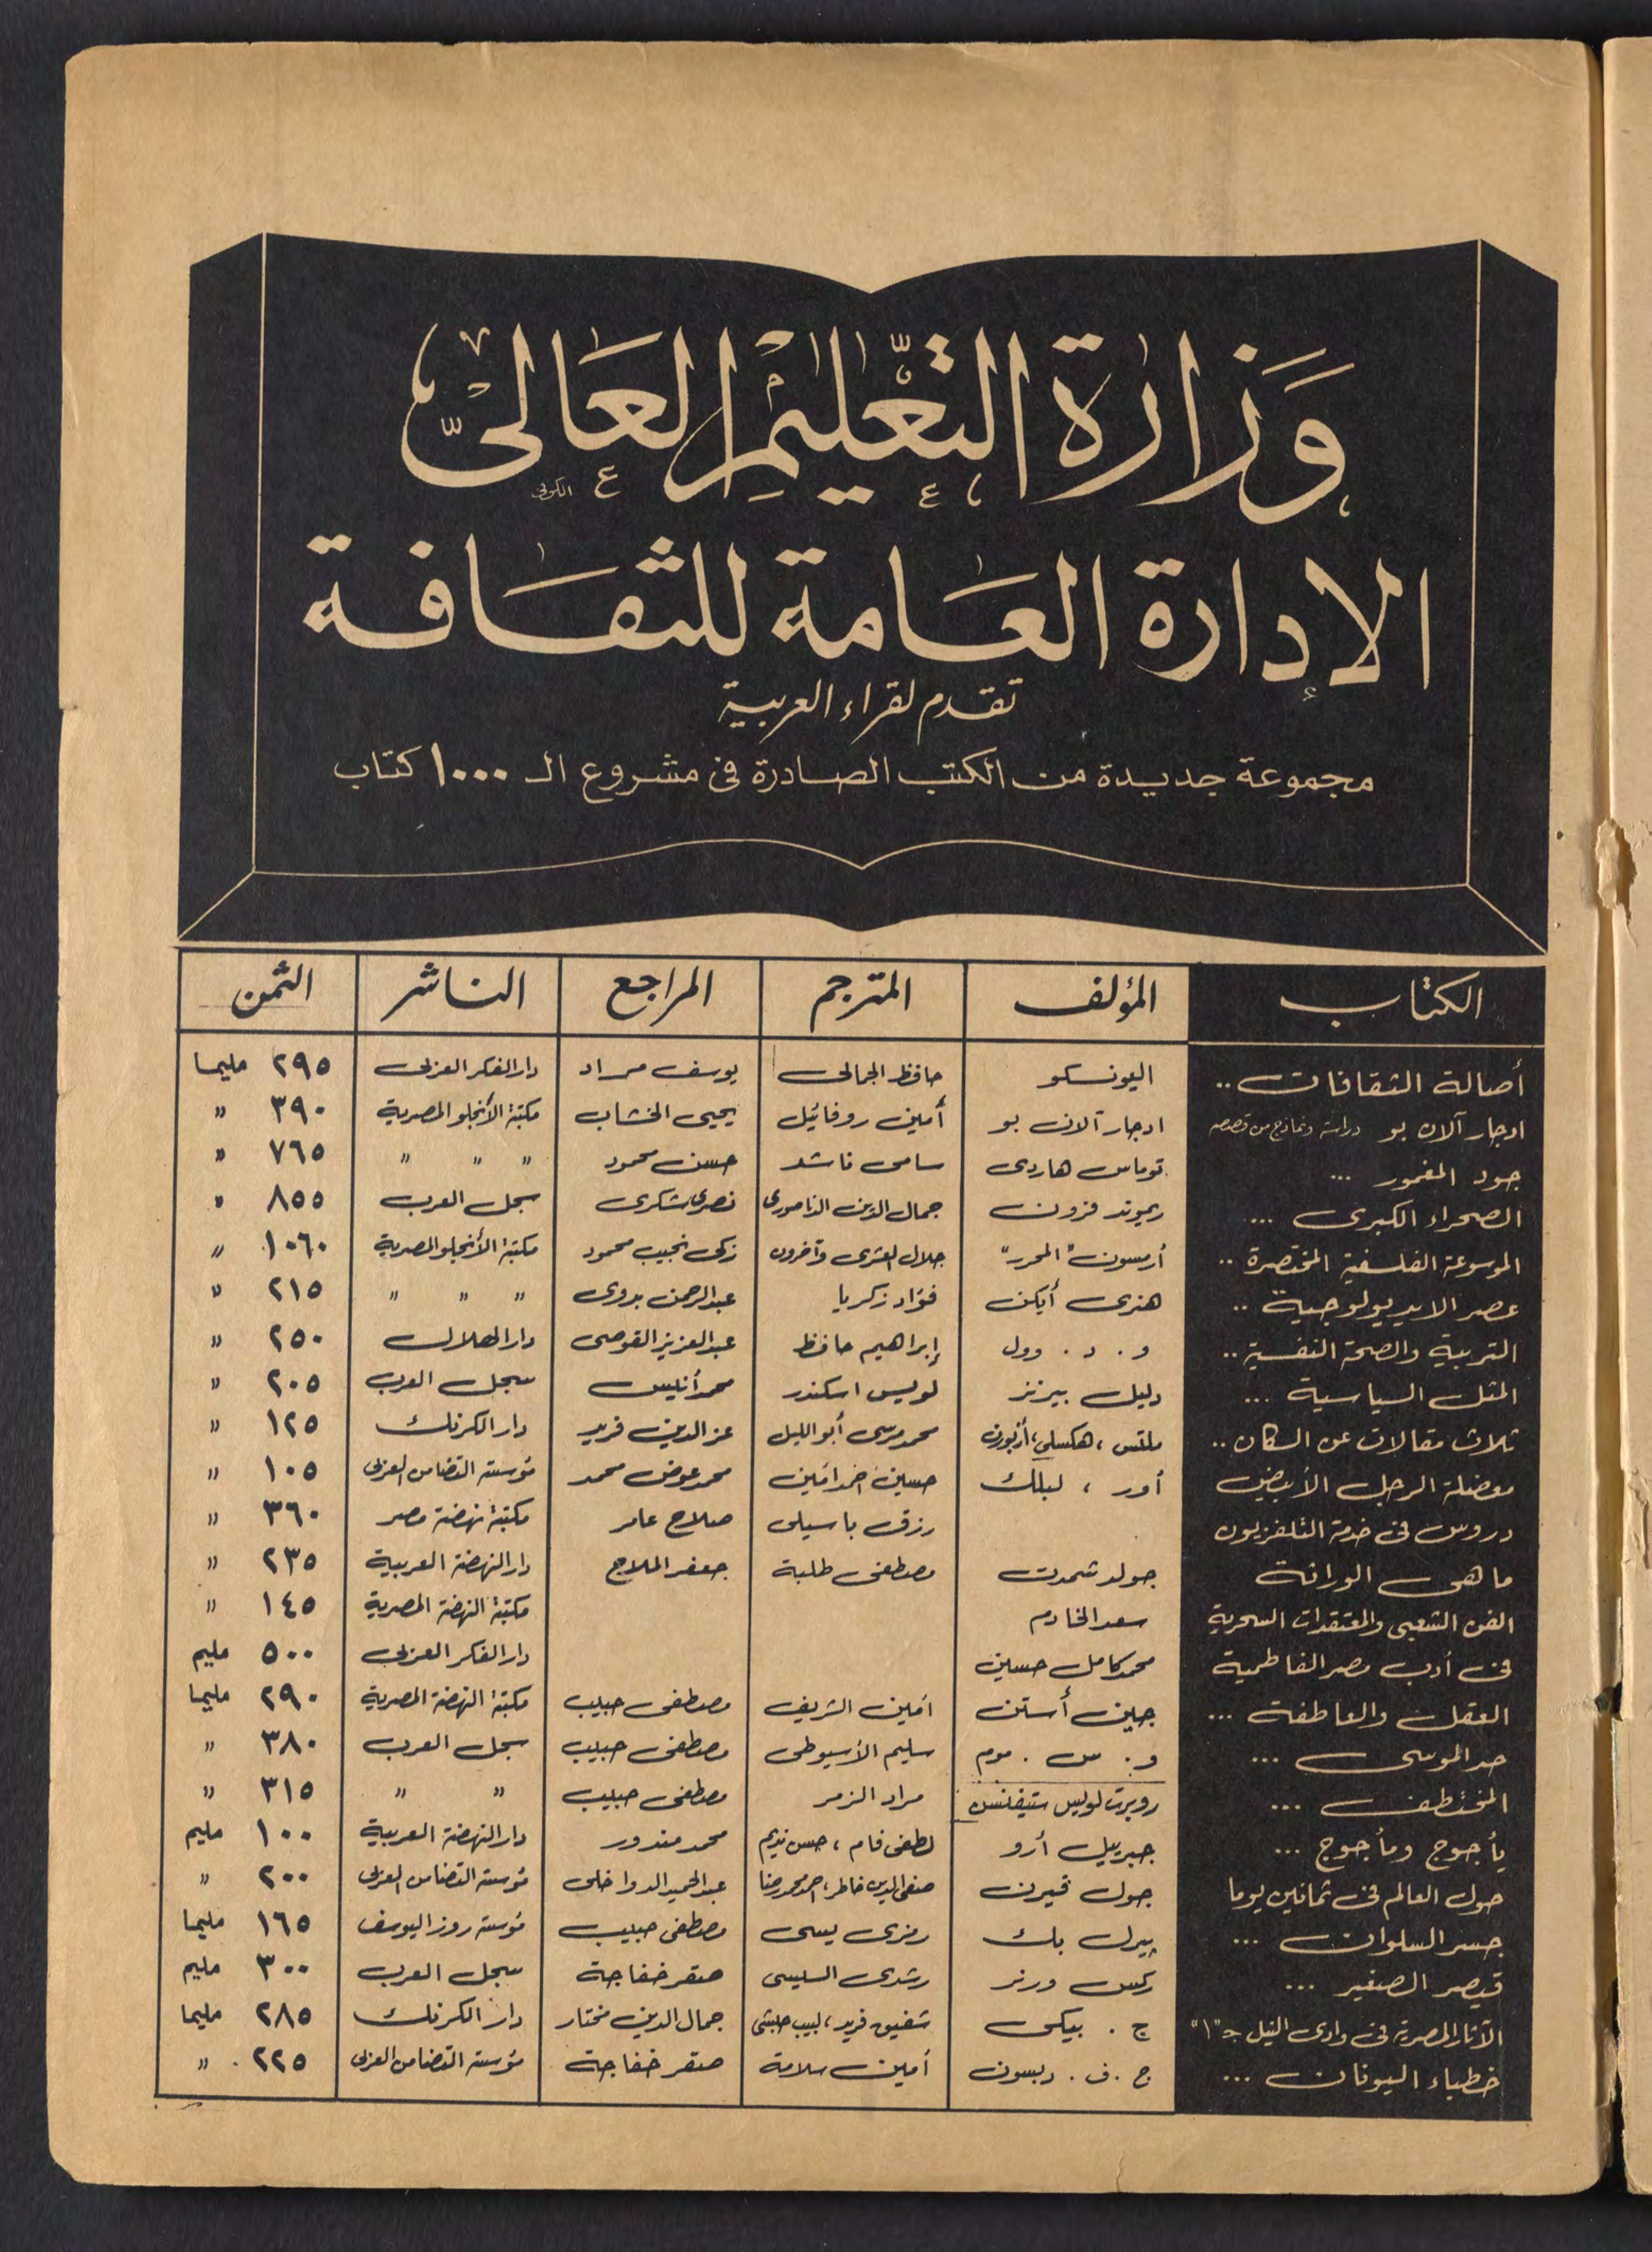 وَزارة التعّليْم العَالىّ
الكوفى
الإدارة العَامة للثقافة
تقدم لقراء العربية
مجموعة جديدة من الكتب الصادرة فى مشروع الـ ١٠٠٠ كتاب
الكتاب المؤلف المترجم المراجع الناشر الثمن
أصالة الثقافات .. اليونسكو حافظ الجمالى يوسف مراد دار الفكر العربى ٢٩٥ مليما
ادجار آلان بو دراسة ونماذج من قصصه ادجار آلان بو أمين روفائيل يحيى الخشاب مكتبة الأنجلو المصرية ٣٩٠ "
جود المغمور ... توماس هاردى سامى ناشد حسن محمود " " " ٧٦٥ "
الصحراء الكبرى ... ريموند فزون جمال الدين الناصورى نصرى شكرى سجل العرب ٨٥٥ "
الموسوعة الفلسفية المختصرة .. أرمسون "المحرر" جلال العشرى وآخرون زكى نجيب محمود مكتبة الأنجلو المصرية ١٠٦٠ "
عصر الايديولوجية .. هنرى أيكن فؤاد زكريا عبد الرحمن بدوى " " " ٢١٥ "
التربية والصحة النفسية .. و . د . وول إبراهيم حافظ عبد العزيز القوصى دار الهلال ٢٥٠ "
المثل السياسية ... دليل بيرنز لويس اسكندر محمد أنيس سجل العرب ٢٠٥ "
ثلاث مقالات عن السكان .. ملتس ، هكسلى ، أزبورن محمد مرسى أبو الليل عز الدين فريد دار الكرنك ١٢٥ "
معضلة الرجل الأبيض أور ، لبلك حسين احمد امين محمد عوض محمد مؤسسة التضامن العربى ١٠٥ "
دروس فى خدمة التلفزيون رزق باسيلى صلاح عامر مكتبة نهضة مصر ٣٦٠ "
ما هى الوراثة جولد شمدت مصطفى طلبة جعفر الملاح دار النهضة العربية ٢٣٥ "
الفن الشعبى والمعتقدات السحرية سعد الخادم مكتبة النهضة المصرية ١٤٥ "
فى أدب مصر الفاطمية محمد كامل حسين دار الفكر العربى ٥٠٠ مليم
العقل والعاطفة ... جين أستن امين الشريف مصطفى حبيب مكتبة النهضة المصرية ٢٩٠ مليما
حد الموسى ... و . س . موم سليم الأسيوطى مصطفى حبيب سجل العرب ٣٨٠ "
المختطف ... روبرت لويس ستيفنسن مراد الزمر مصطفى حبيب " " ٣١٥ "
يأجوج ومأجوج ... جبرييل أرو لطفى فام ، حسن نديم محمد مندور دار النهضة العربية ١٠٠ مليم
حول العالم فى ثمانين يوما جول فيرن صفى الدين خاطر ، احمد محمد رضا عبد الحميد الدواخلى مؤسسة التضامن العربى ٢٠٠ "
جسر السلوان ... پيرل بك رمزى يسى مصطفى حبيب مؤسسة روز اليوسف ١٦٥ مليما
قيصر الصغير ... ركس ورنر رشدى السيسى صقر خفاجة سجل العرب ٣٠٠ مليم
الآثار المصرية فى وادى النيل جـ "١" ج . بيكى شفيق فريد ، لبيب حبشى جمال الدين مختار دار الكرنك ٢٨٥ مليما
خطباء اليونان ... ج . ف . دبسون أمين سلامة صقر خفاجة مؤسسة التضامن العربى ٢٢٥ "